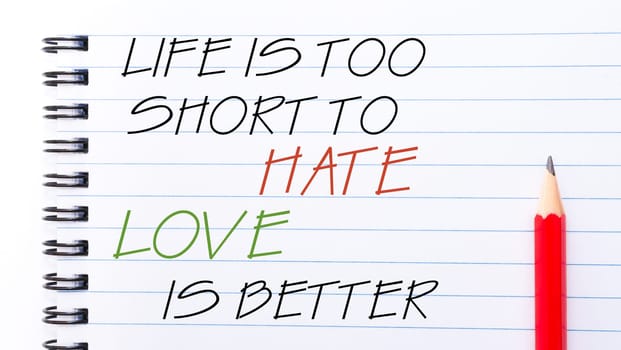 LIFE IS TOO
SHORT TO
HATE
LOVE
IS BETTER